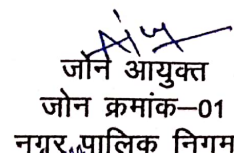 जोन आयुक्त
जोन क्रमांक–01
नगर पालिक निगम